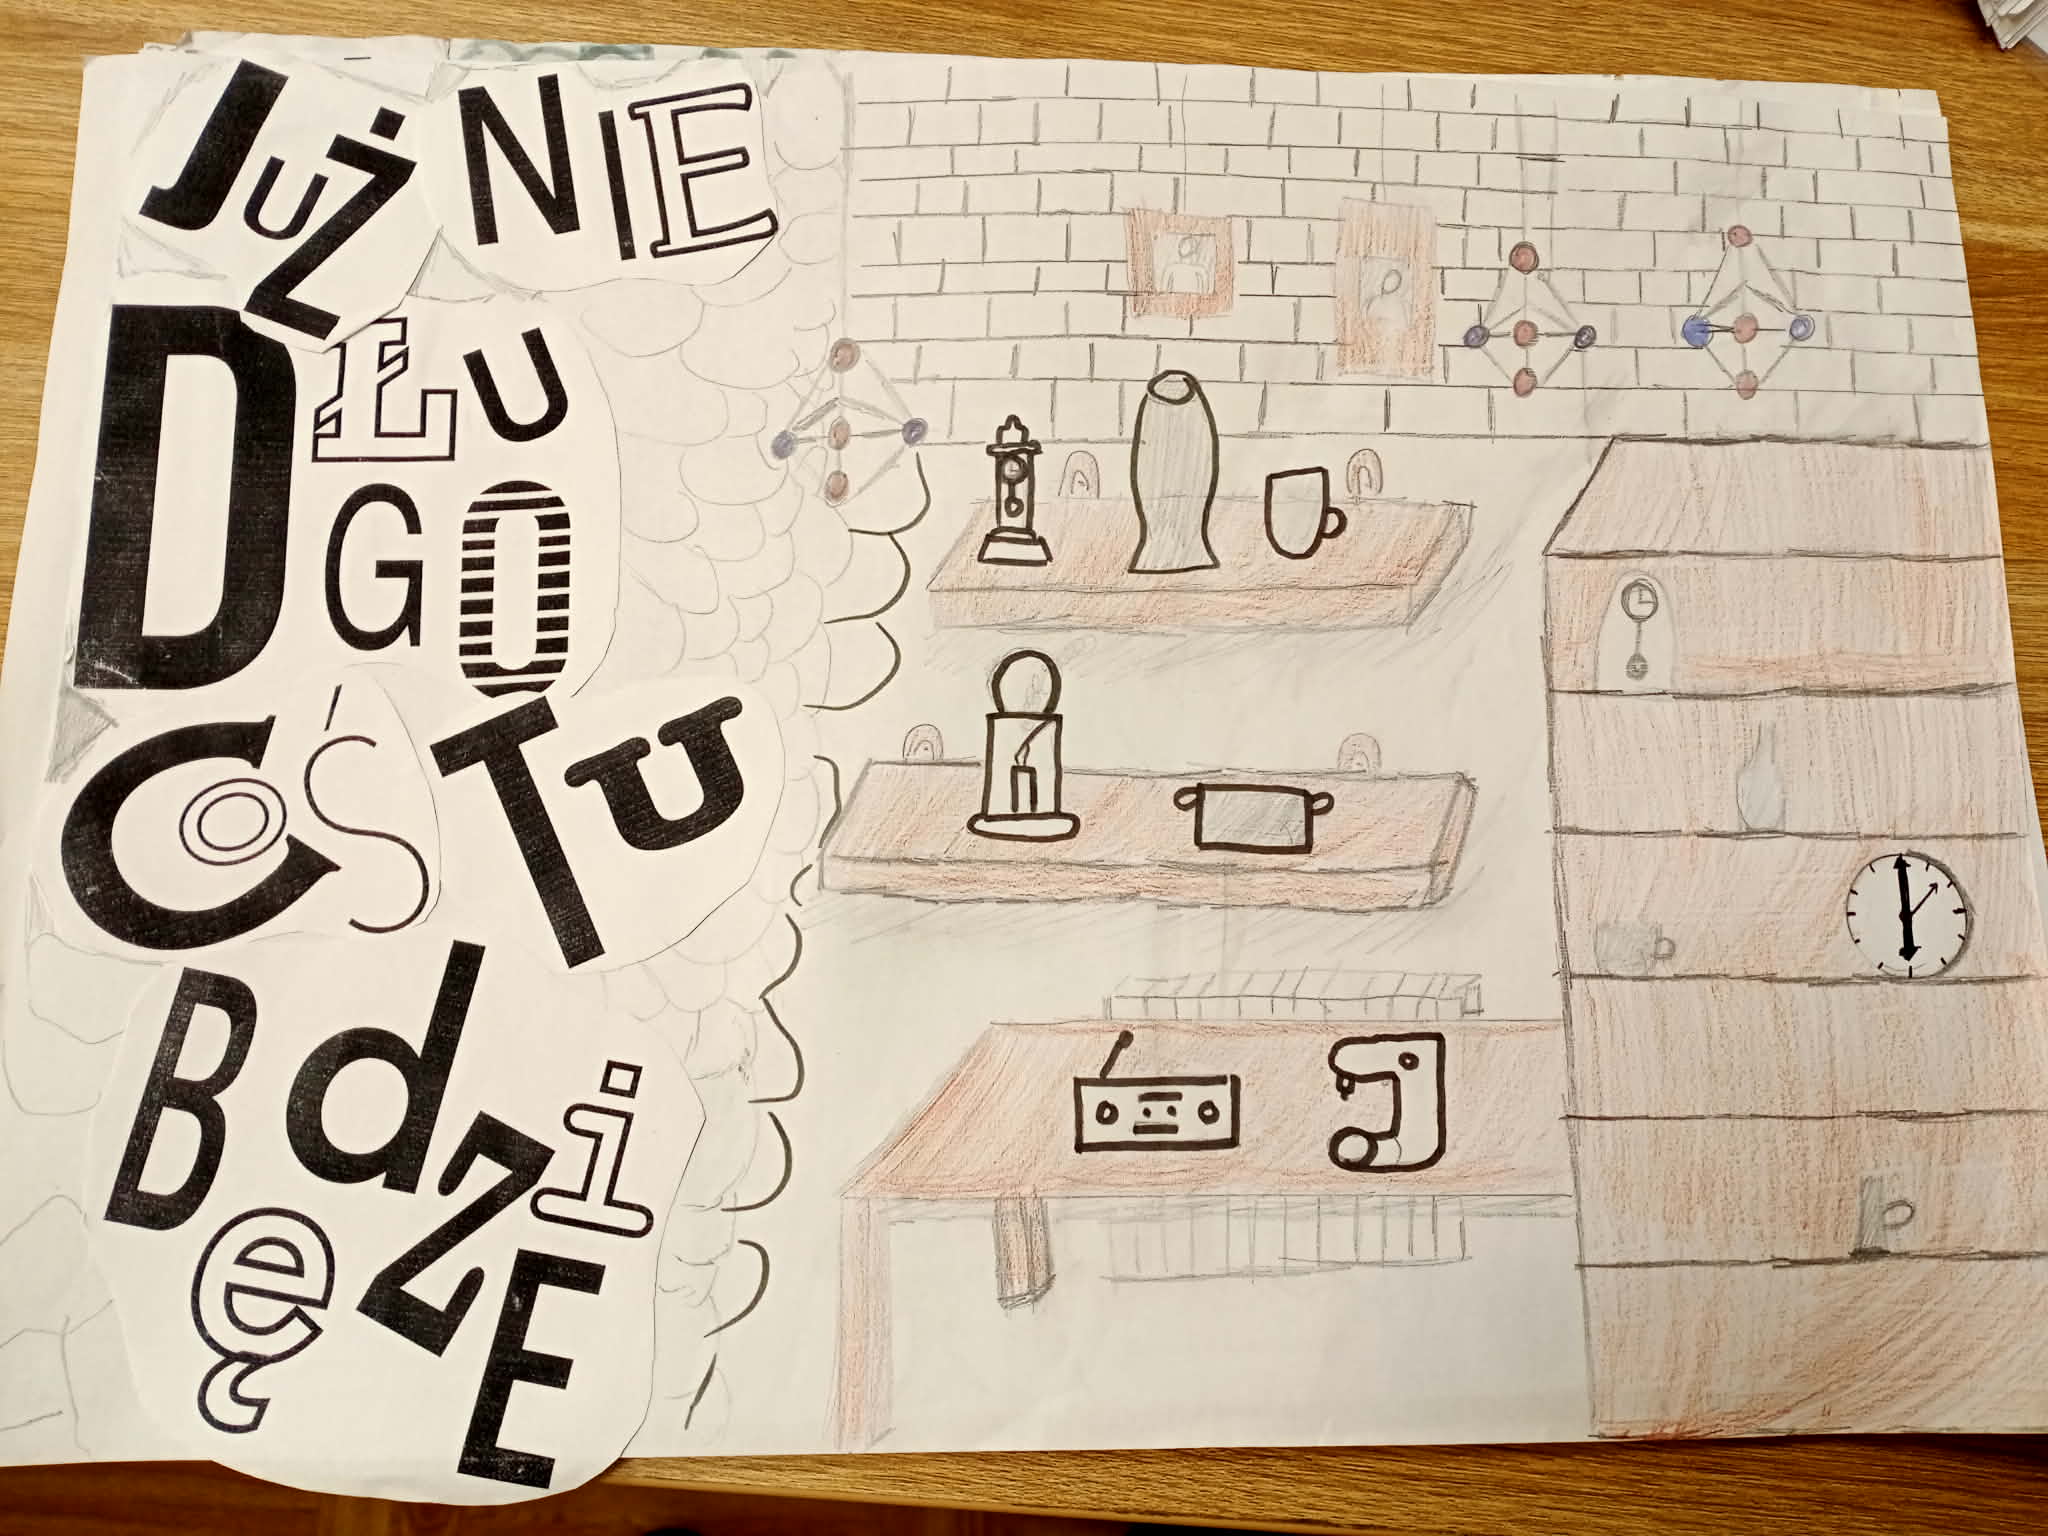 JuŻ NIE
DŁUGO
CoŚ TU
BędZiE